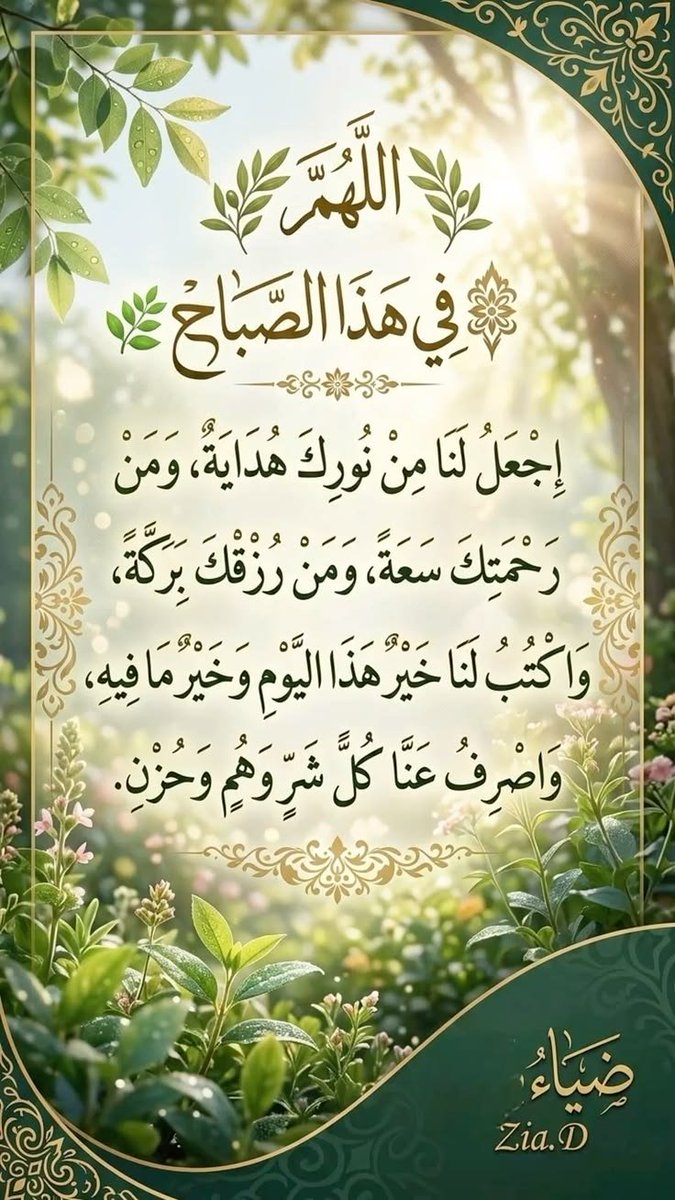 اللَّهُمَّ
فِي هَذَا الصَّبَاحْ
إِجْعَلُ لَنَا مِنْ نُورِكَ هُدَايَةٌ، وَمَنْ
رَحْمَتِكَ سَعَةً، وَمَنْ رُزْقْكَ بَرَكَّةً،
وَاكْتُبُ لَنَا خَيْرٌ هَذَا اليَّوْمِ وَخَيْرٌ مَا فِيهِ،
وَاصْرِفُ عَنَّا كُلَّ شَرٍّ وَهُمٍ وَحُزْنِ.
ضَيَاءُ
Zia.D